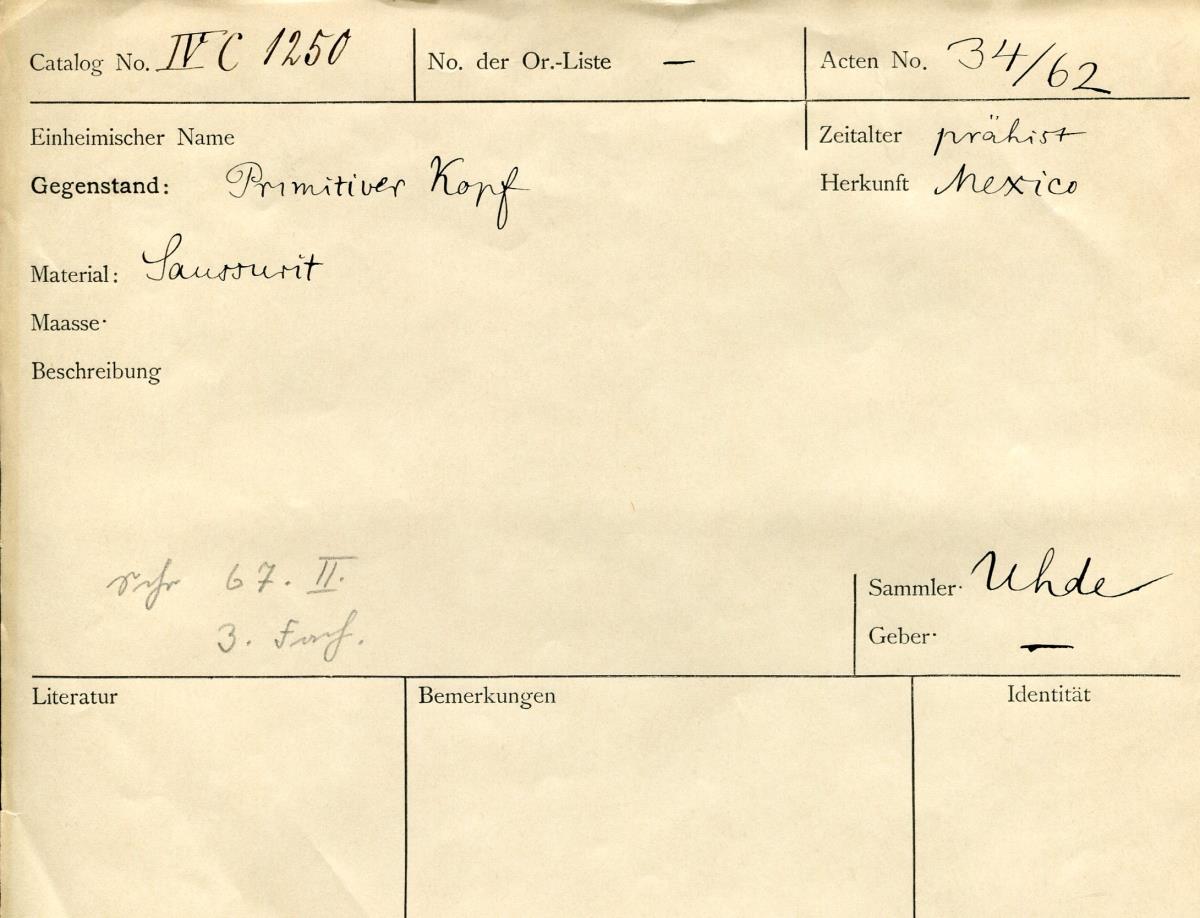 Catalog No. IV C 1250
No. der Or.-Liste —
Acten No. 34/62
Einheimischer Name
Zeitalter prähist
Gegenstand: Primitiver Kopf
Herkunft Mexico
Material: Saussurit
Maasse·
Beschreibung
67. II.
3. Fach.
Sammler· Uhde
Geber· —
Literatur
Bemerkungen
Identität